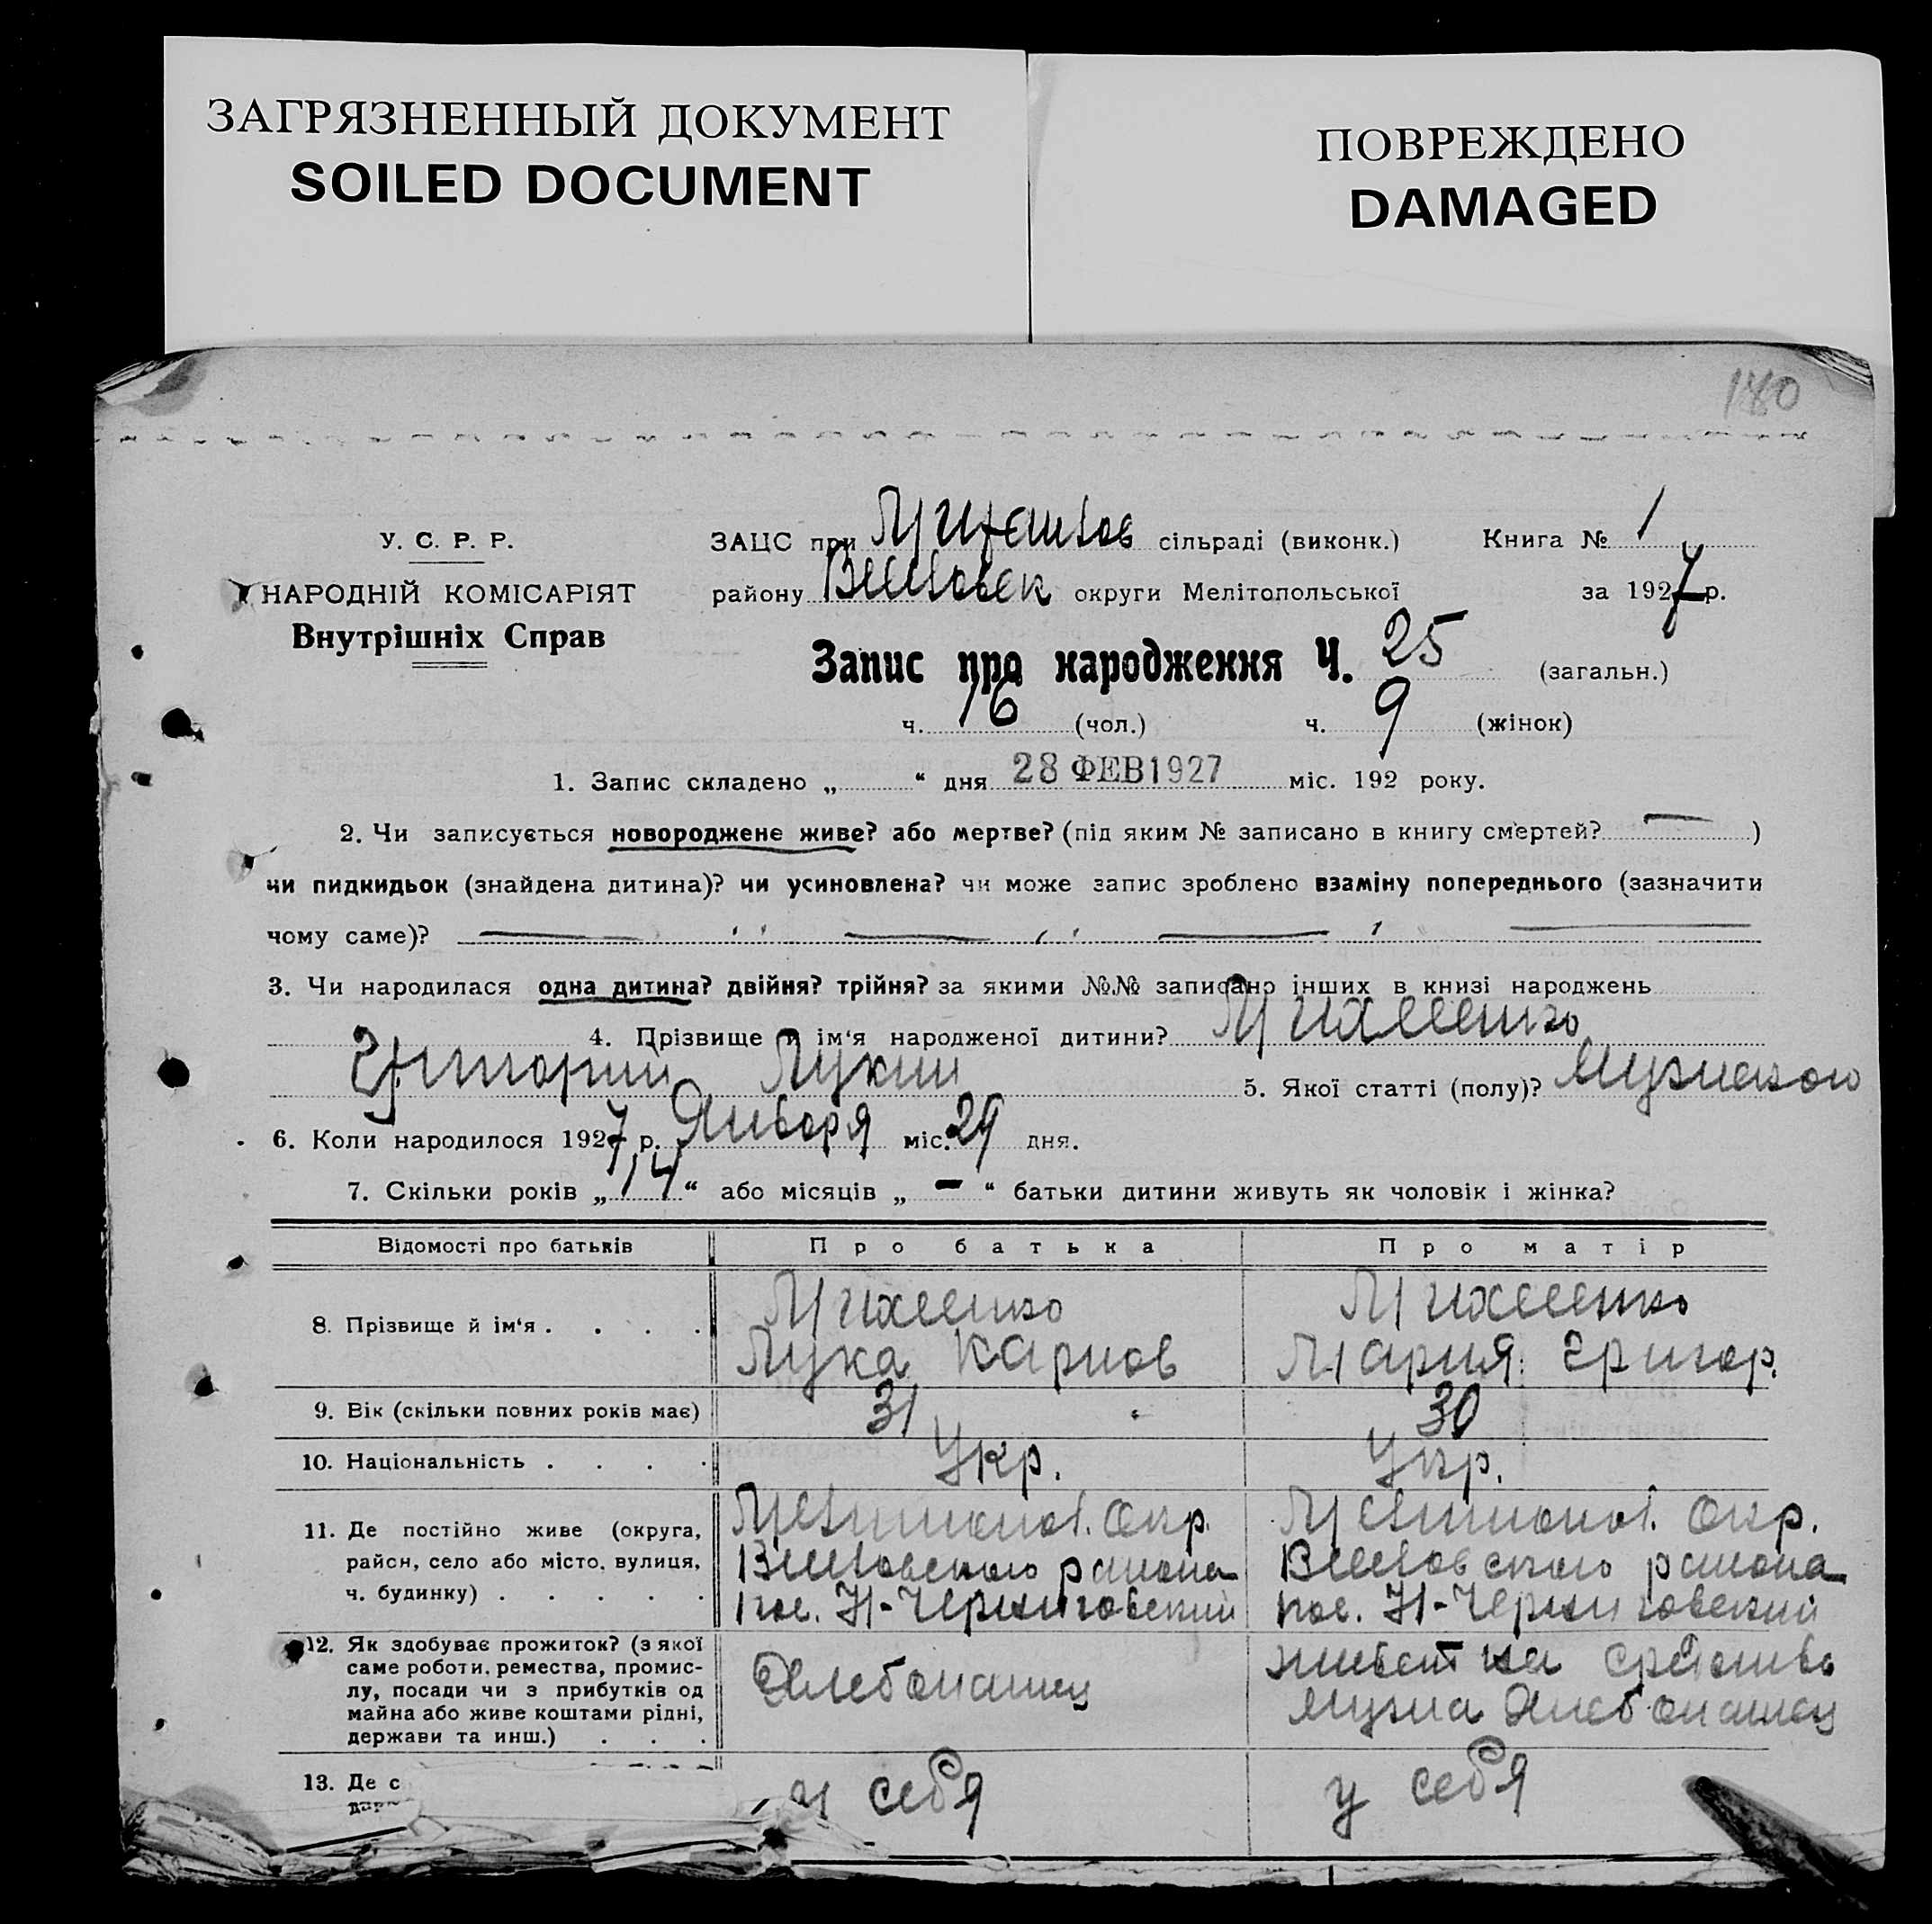 ЗАГРЯЗНЕННЫЙ ДОКУМЕНТ
SOILED DOCUMENT
ПОВРЕЖДЕНО
DAMAGED
180
У. С. Р. Р.
НАРОДНІЙ КОМІСАРІЯТ
Внутрішніх Справ
ЗАЦС при сільраді (виконк.) Книга № 1
району округи Мелітопольської за 1927 р.
Запис про народження Ч. 25 (загальн.)
ч. 16 (чол.) ч. 9 (жінок)
1. Запис складено „ “ дня 28 ФЕВ 1927 міс. 192 року.
2. Чи записується новороджене живе? або мертве? (під яким № записано в книгу смертей? — )
чи пидкидьок (знайдена дитина)? чи усиновлена? чи може запис зроблено взаміну попереднього (зазначити
чому саме)?
3. Чи народилася одна дитина? двійня? трійня? за якими №№ записано інших в книзі народжень
4. Прізвище й ім‘я народженої дитини? Михеенко
Григорий Лукич 5. Якої статті (полу)? Мужского
6. Коли народилося 1927 р. Января міс. 29 дня.
7. Скільки років „ 14 “ або місяців „ - “ батьки дитини живуть як чоловік і жінка?
Відомості про батьків Про батька Про матір
8. Прізвище й ім‘я . . . . Михеенко Михеенко
Лука Карпов Мария Григор.
9. Вік (скільки повних років має) 31 30
10. Національність . . . . Укр. Укр.
11. Де постійно живе (округа, Мелитопол. Окр. Мелитопол. Окр.
район, село або місто, вулиця, района района
ч. будинку) . . . . . пос. Н-Черниговский пос. Н-Черниговский
12. Як здобуває прожиток? (з якої
саме роботи, ремества, промис- живет на средства
лу, посади чи з прибутків од Хлебопашец мужа Хлебопашец
майна або живе коштами рідні,
держави та инш.) . . .
13. Де с у себя у себя